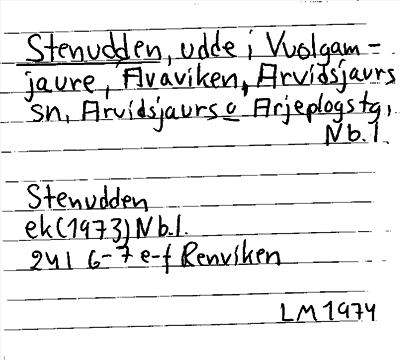 Stenudden, udde i Vuolgam-
jaure, Avaviken, Arvidsjaurs
sn, Arvidsjaurs o Arjeplogs tg,
Nb.l.
Stenudden
ek(1973)Nb.l.
24I 6-7 e-f Renviken
LM1974